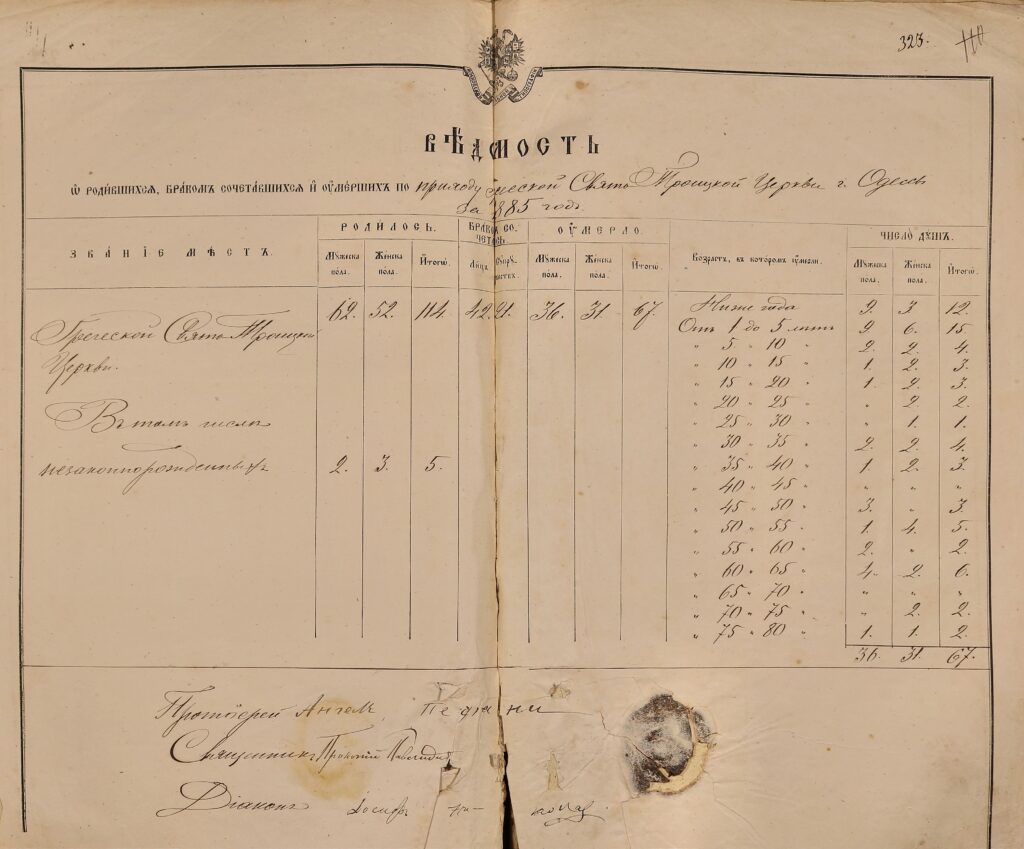 323.
ВѢДОМОСТЬ
Ѡ РОДИВШИХСЯ, БРАКОМЪ СОЧЕТАВШИХСЯ И ОУМЕРШИХЪ ПО приходу Греческой Свято Троицкой Церкви г. Одессы
За 1885 годъ.
ЗВАНІЕ МѢСТЪ.
РОДИЛОСЬ. БРАКОМ СОЧЕТАЛОСЬ. ОУМЕРЛО. Возрастъ, въ которомъ оумерли. ЧИСЛО ДУШЪ.
Мужеска пола. Женска пола. Итогѡ. Лицъ. Супружествъ. Мужеска пола. Женска пола. Итогѡ. Мужеска пола. Женска пола. Итогѡ.
Греческой Свято Троицкой 62. 52. 114. 42. 21. 36. 31. 67. Ниже года 9. 3. 12.
Церкви.
Отъ 1 до 5 лѣтъ 9 6. 15
" 5 " 10 " 2. 2. 4.
" 10 " 15 " 1. 2. 3.
" 15 " 20 " 1. 2. 3.
" 20 " 25 " " 2. 2.
Въ томъ числѣ " 25 " 30 " " 1. 1.
" 30 " 35 " 2. 2. 4.
незаконнорожденныхъ 2. 3. 5. " 35 " 40 " 1. 2. 3.
" 40 " 45 " " " "
" 45 " 50 " 3. " 3.
" 50 " 55 " 1. 4. 5.
" 55 " 60 " 2. " 2.
" 60 " 65 " 4. 2. 6.
" 65 " 70 " " " "
" 70 " 75 " " 2. 2.
" 75 " 80 " 1. 1. 2.
36. 31. 67.
Протоіерей Ангелъ
Священникъ Прокопій
Діаконъ